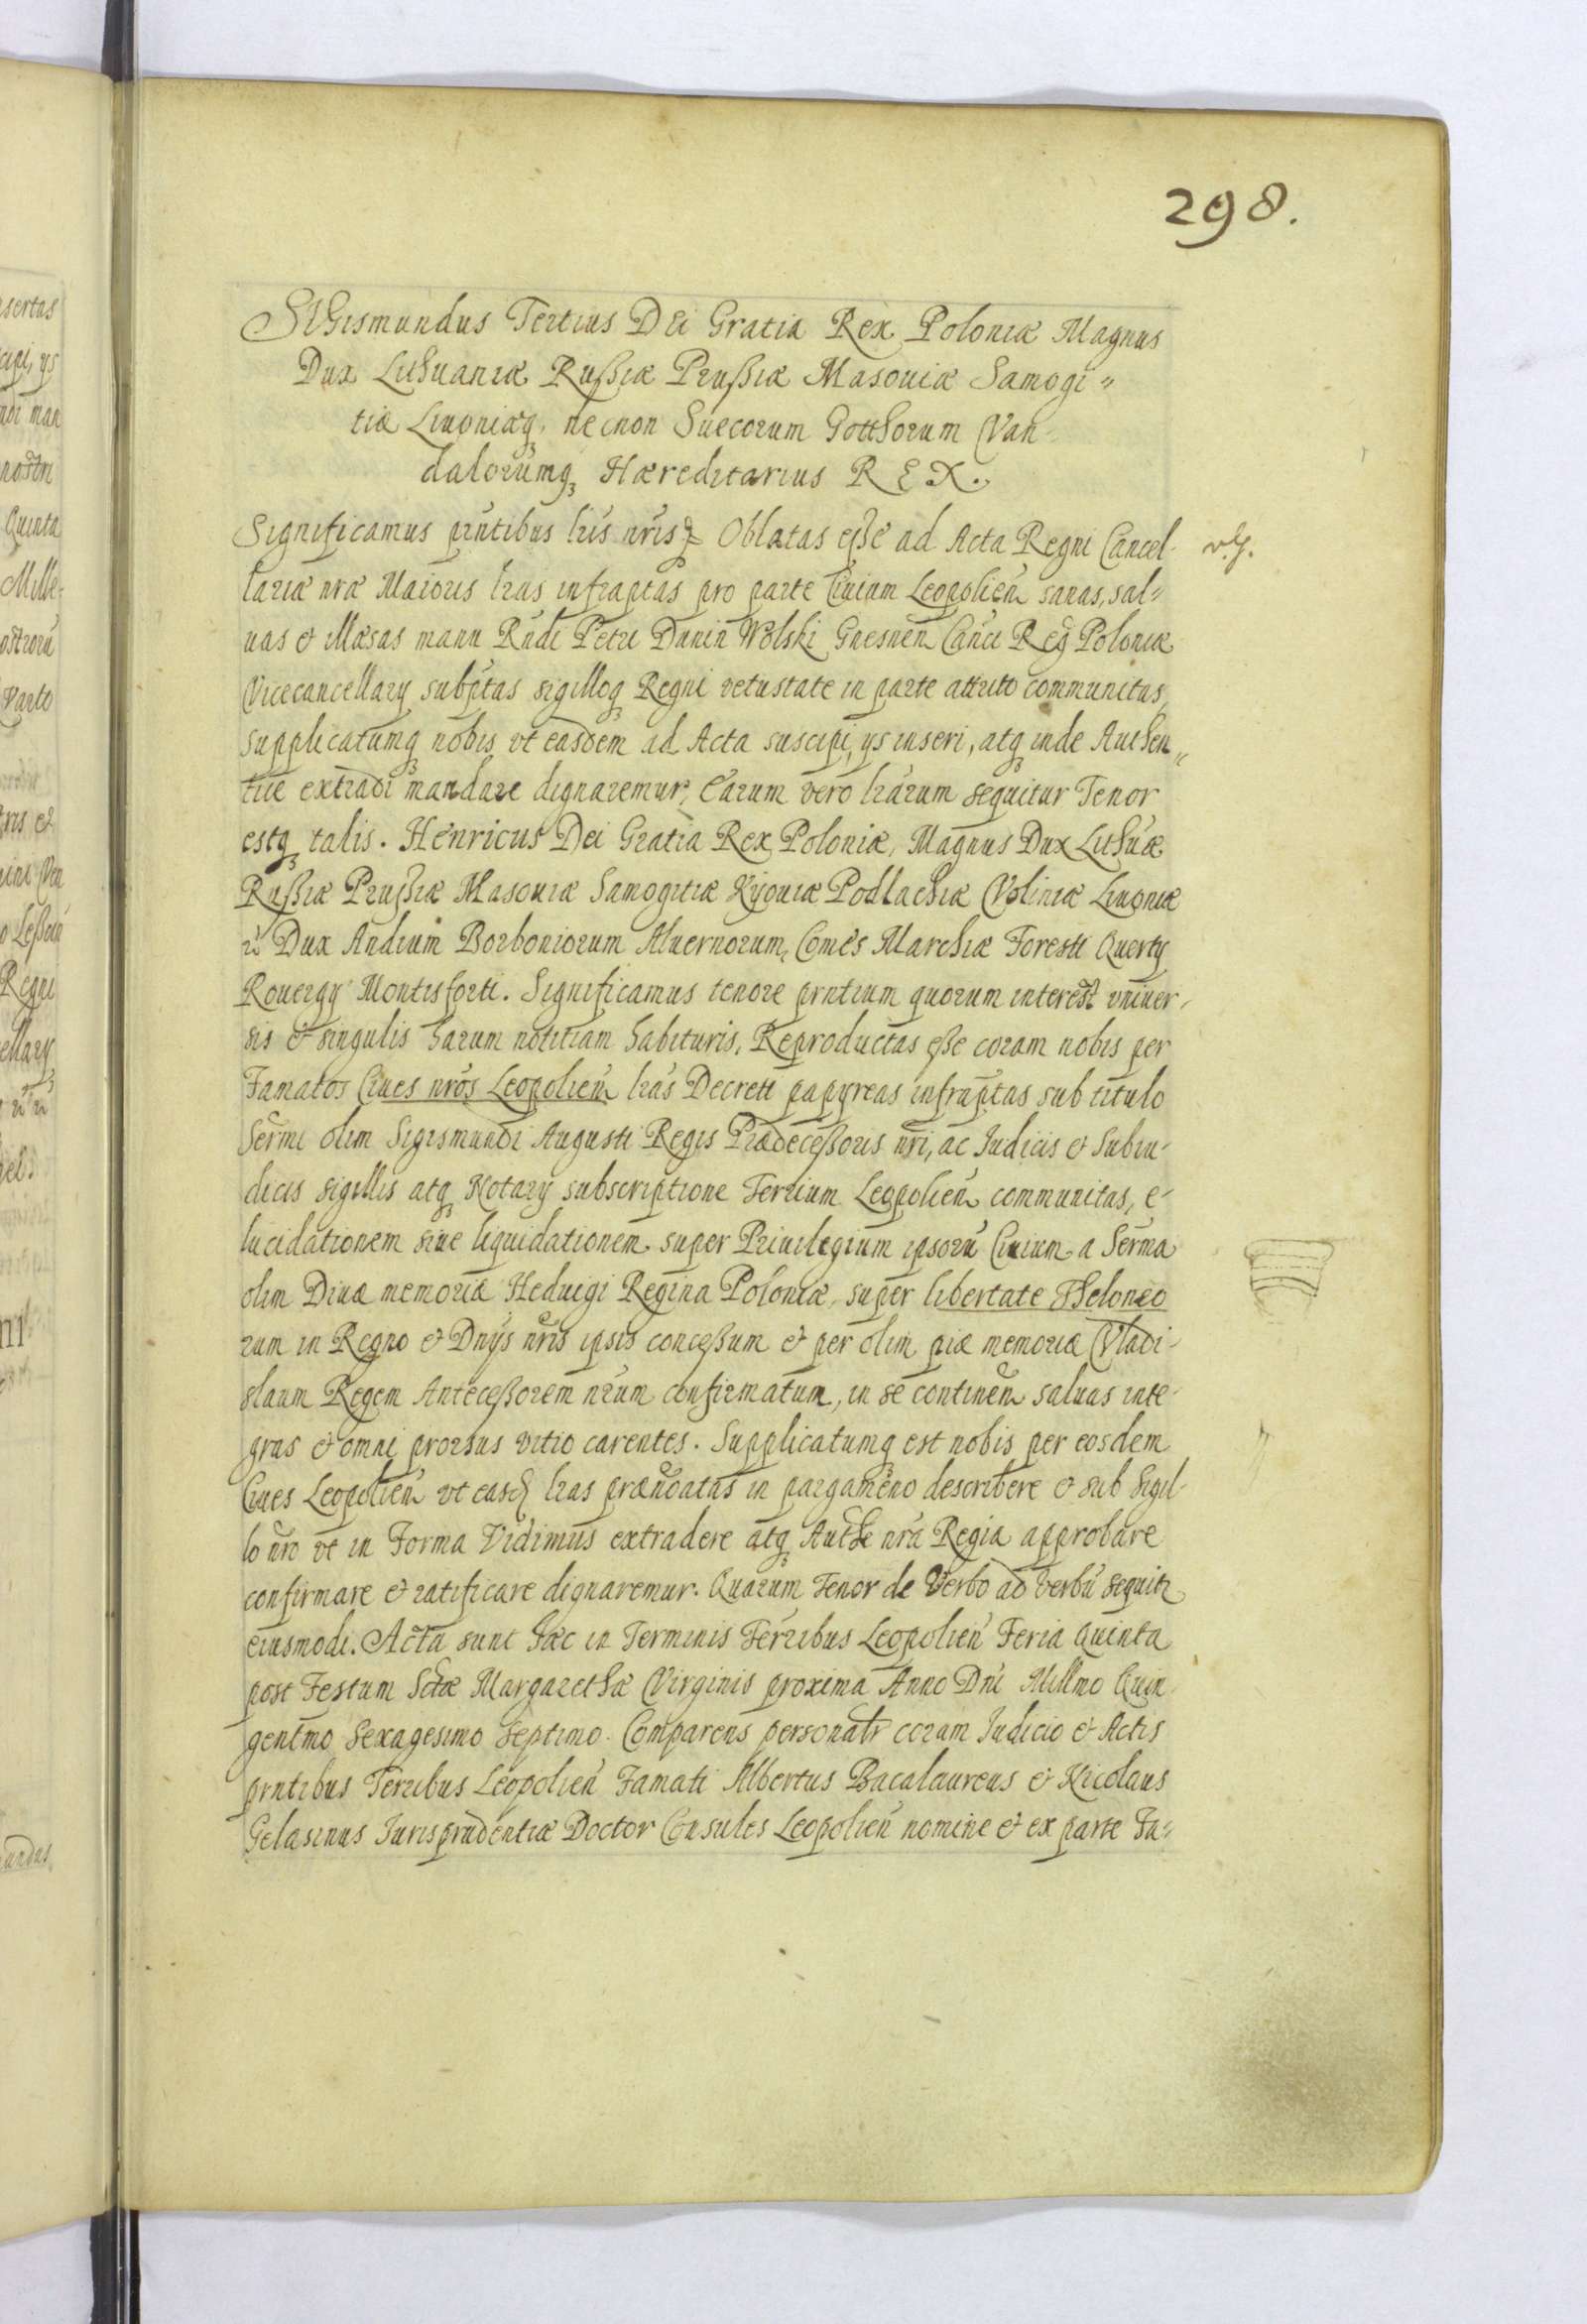 298.
SIGismundus Tertius DEi Gratia Rex Poloniæ Magnus
Dux Lithuaniæ Rußiæ Prußiæ Masouiæ Samogi=
tiæ Liuoniæq3 necnon Suecorum Gotthorum Van-
dalorumq3 Hæreditarius REX.
Significamus pntibus lris nris Oblatas eße ad Acta Regni Cancel-
lariæ nræ Maioris lras infraptas pro parte Ciuium Leopolien sanas, sal=
uas et illæsas manu Rndi Petri Dunin Wolski Gnesnen Canci Reg Poloniæ
Vicecancellarij subptas sigilloq3 Regni vetustate in parte attrito communitas,
supplicatumq3 nobis vt easdem ad Acta suscipi, ijs inseri, atq3 inde Authen=
tice extradi mandare dignaremur, Earum vero lrarum sequitur Tenor
estq3 talis. Henricus Dei Gratia Rex Poloniæ, Magnus Dux Lithuæ
Rußiæ Prußiæ Masouiæ Samogitiæ Kijouiæ Podlachiæ Voliniæ Liuoniæ
Dux Andium Borboniorum Aluernorum, Comes Marchiæ Foresti Quertij
Rouergij Montisforti. Significamus tenore prntium quorum interest vniuer-
sis et singulis harum notitiam habituris, Reproductas eße coram nobis per
Famatos Ciues nros Leopolien lras Decreti papyreas infraptas sub titulo
Sermi olim Sigismundi Augusti Regis Prædeceßoris nri, ac Iudicis et Subiu-
dicis sigillis atq3 Notarij subscriptione Terrium Leopolien communitas, e-
lucidationem siue liquidationem super Priuilegium ipsoru Ciuium a Serma
olim Diuæ memoriæ Heduigi Regina Poloniæ, super libertate Theloneo
rum in Regno et Dnijs nris ipsis conceßum et per olim piæ memoriæ Vladi-
slaum Regem Anteceßorem nrum confirmatum, in se continen saluas inte-
gras et omni prorsus vitio carentes. Supplicatumq3 est nobis per eosdem
Ciues Leopolien vt easd lras prænoatas in pargameno describere et sub Sigil-
lo nro vt in Forma Vidimus extradere atq3 Authe nra Regia approbare
confirmare et ratificare dignaremur. Quarum Tenor de Verbo ad verbu sequitr
eiusmodi. Acta sunt hæc in Terminis Terribus Leopolien Feria Quinta
post Festum Sctæ Margarethæ Virginis proxima Anno Dni Millmo Quin
gentmo Sexagesimo Septimo. Comparens personalr coram Iudicio et Actis
prntibus Terribus Leopolien Famati Albertus Bacalaureus et Nicolaus
Gelasinus Iurisprudentiæ Doctor Consules Leopolien nomine et ex parte Fa=